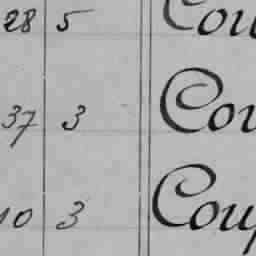 28 5 Cou
37 3 Cou
10 3 Coup